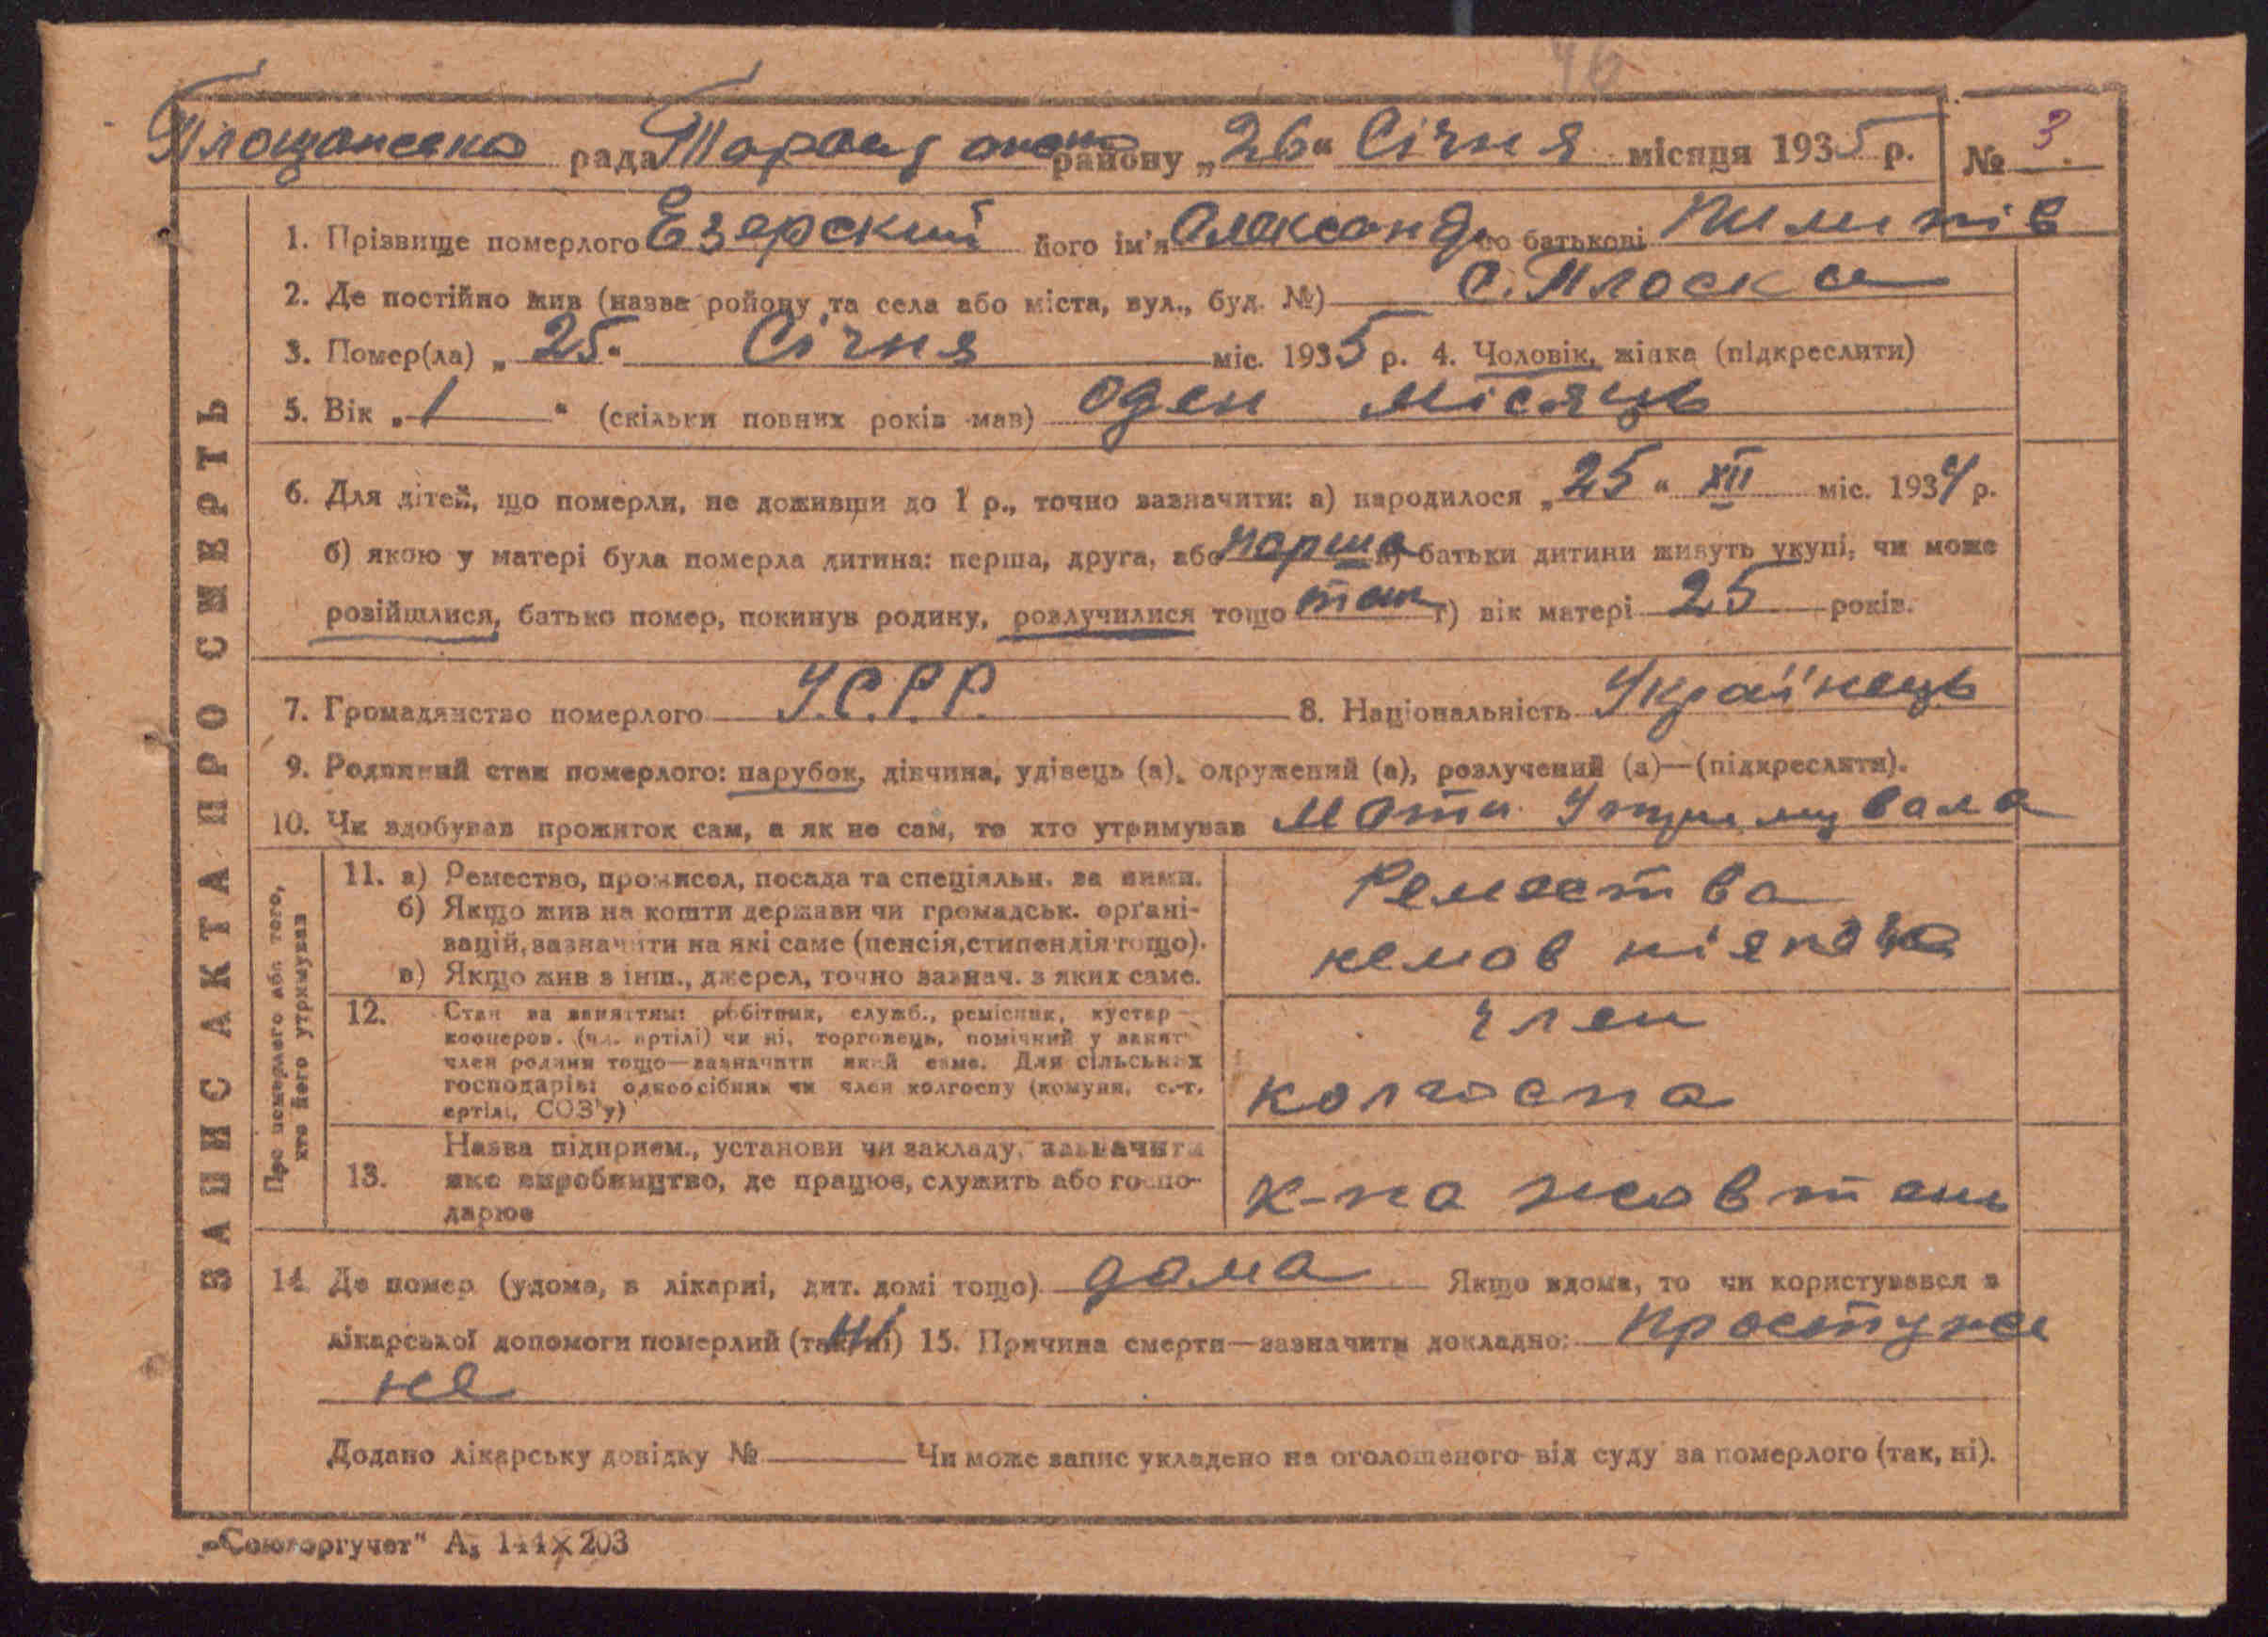 46
рада району „26“ Січня місяця 1935 р. № 3.
1. Прізвище померлого Езерский його ім'я Олександ по батькові
2. Де постійно жив (назва району та села або міста, вул., буд. №) С. Плоска
3. Помер(ла) „25“ Січня міс. 1935 р. 4. Чоловік, жінка (підкреслити)
5. Вік „1“ (скільки повних років мав) Оден місяць
6. Для дітей, що померли, не доживши до 1 р., точно зазначити: а) народилося „25“ XII міс. 1934 р.
б) якою у матері була померла дитина: перша, друга, або перша в) батьки дитини живуть укупі, чи може
розійшлися, батько помер, покинув родину, розлучилися тощо так г) вік матері 25 років.
7. Громадянство померлого У.С.Р.Р. 8. Національність Українець
9. Родинний стан померлого: парубок, дівчина, удівець (а), одружений (а), розлучений (а)—(підкреслити).
10. Чи здобував прожиток сам, а як не сам, то хто утримував Мати Утримувала
ЗАПИС АКТА ПРО СМЕРТЬ
Про померлого або того,
хто його утримував
11. а) Ремество, промисел, посада та спеціяльн. за ними.
б) Якщо жив на кошти держави чи громадськ. органі-
зацій, зазначити на які саме (пенсія, стипендія тощо).
в) Якщо жив з інш., джерел, точно зазнач. з яких саме.
Ремества
12. Стан за заняттям: робітник, служб., ремісник, кустар
кооперов. (чл. артілі) чи ні, торговець, помічний у занят
член родини тощо—зазначити який саме. Для сільських
господарів: одноосібник чи член колгоспу (комуни, с.-г.
артілі, СОЗ'у)
член
колгоспа
13. Назва підприєм., установи чи закладу, зазначити
яке виробництво, де працює, служить або госпо-
дарює
14. Де помер (удома, в лікарні, дит. домі тощо) дома Якщо вдома, то чи користувався з
лікарської допомоги померлий (так, ні) ні 15. Причина смерти—зазначити докладно:
Додано лікарську довідку № Чи може запис укладено на оголошеного від суду за померлого (так, ні).
„Союзоргучет“ А5 144×203